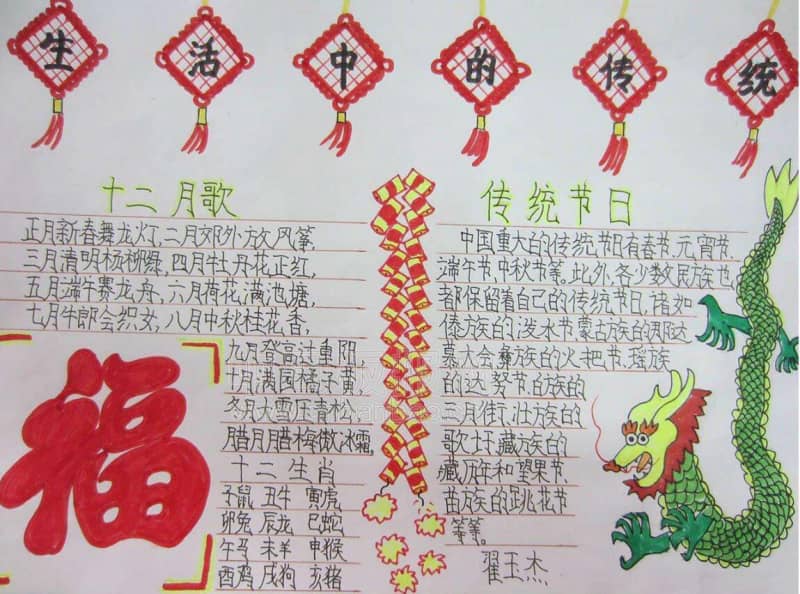 生活中的传统
十二月歌
正月新春舞龙灯,二月郊外放风筝,
三月清明杨柳绿,四月牡丹花正红,
五月端午赛龙舟,六月荷花满池塘,
七月牛郎会织女,八月中秋桂花香,
九月登高过重阳,
十月满园橘子黄,
冬月大雪压青松,
腊月腊梅傲冰霜,
十二生肖
子鼠 丑牛 寅虎
卯兔 辰龙 巳蛇
午马 未羊 申猴
酉鸡 戌狗 亥猪
福
传统节日
中国重大的传统节日有春节、元宵节、
端午节、中秋节等。此外,各少数民族也
都保留着自己的传统节日,诸如
傣族的泼水节、蒙古族的那达
慕大会、彝族的火把节、瑶族
的达努节、的族的
三月街、壮族的
歌圩、藏族的
藏历年和望果节、
苗族的跳花节
等等。
翟玉杰